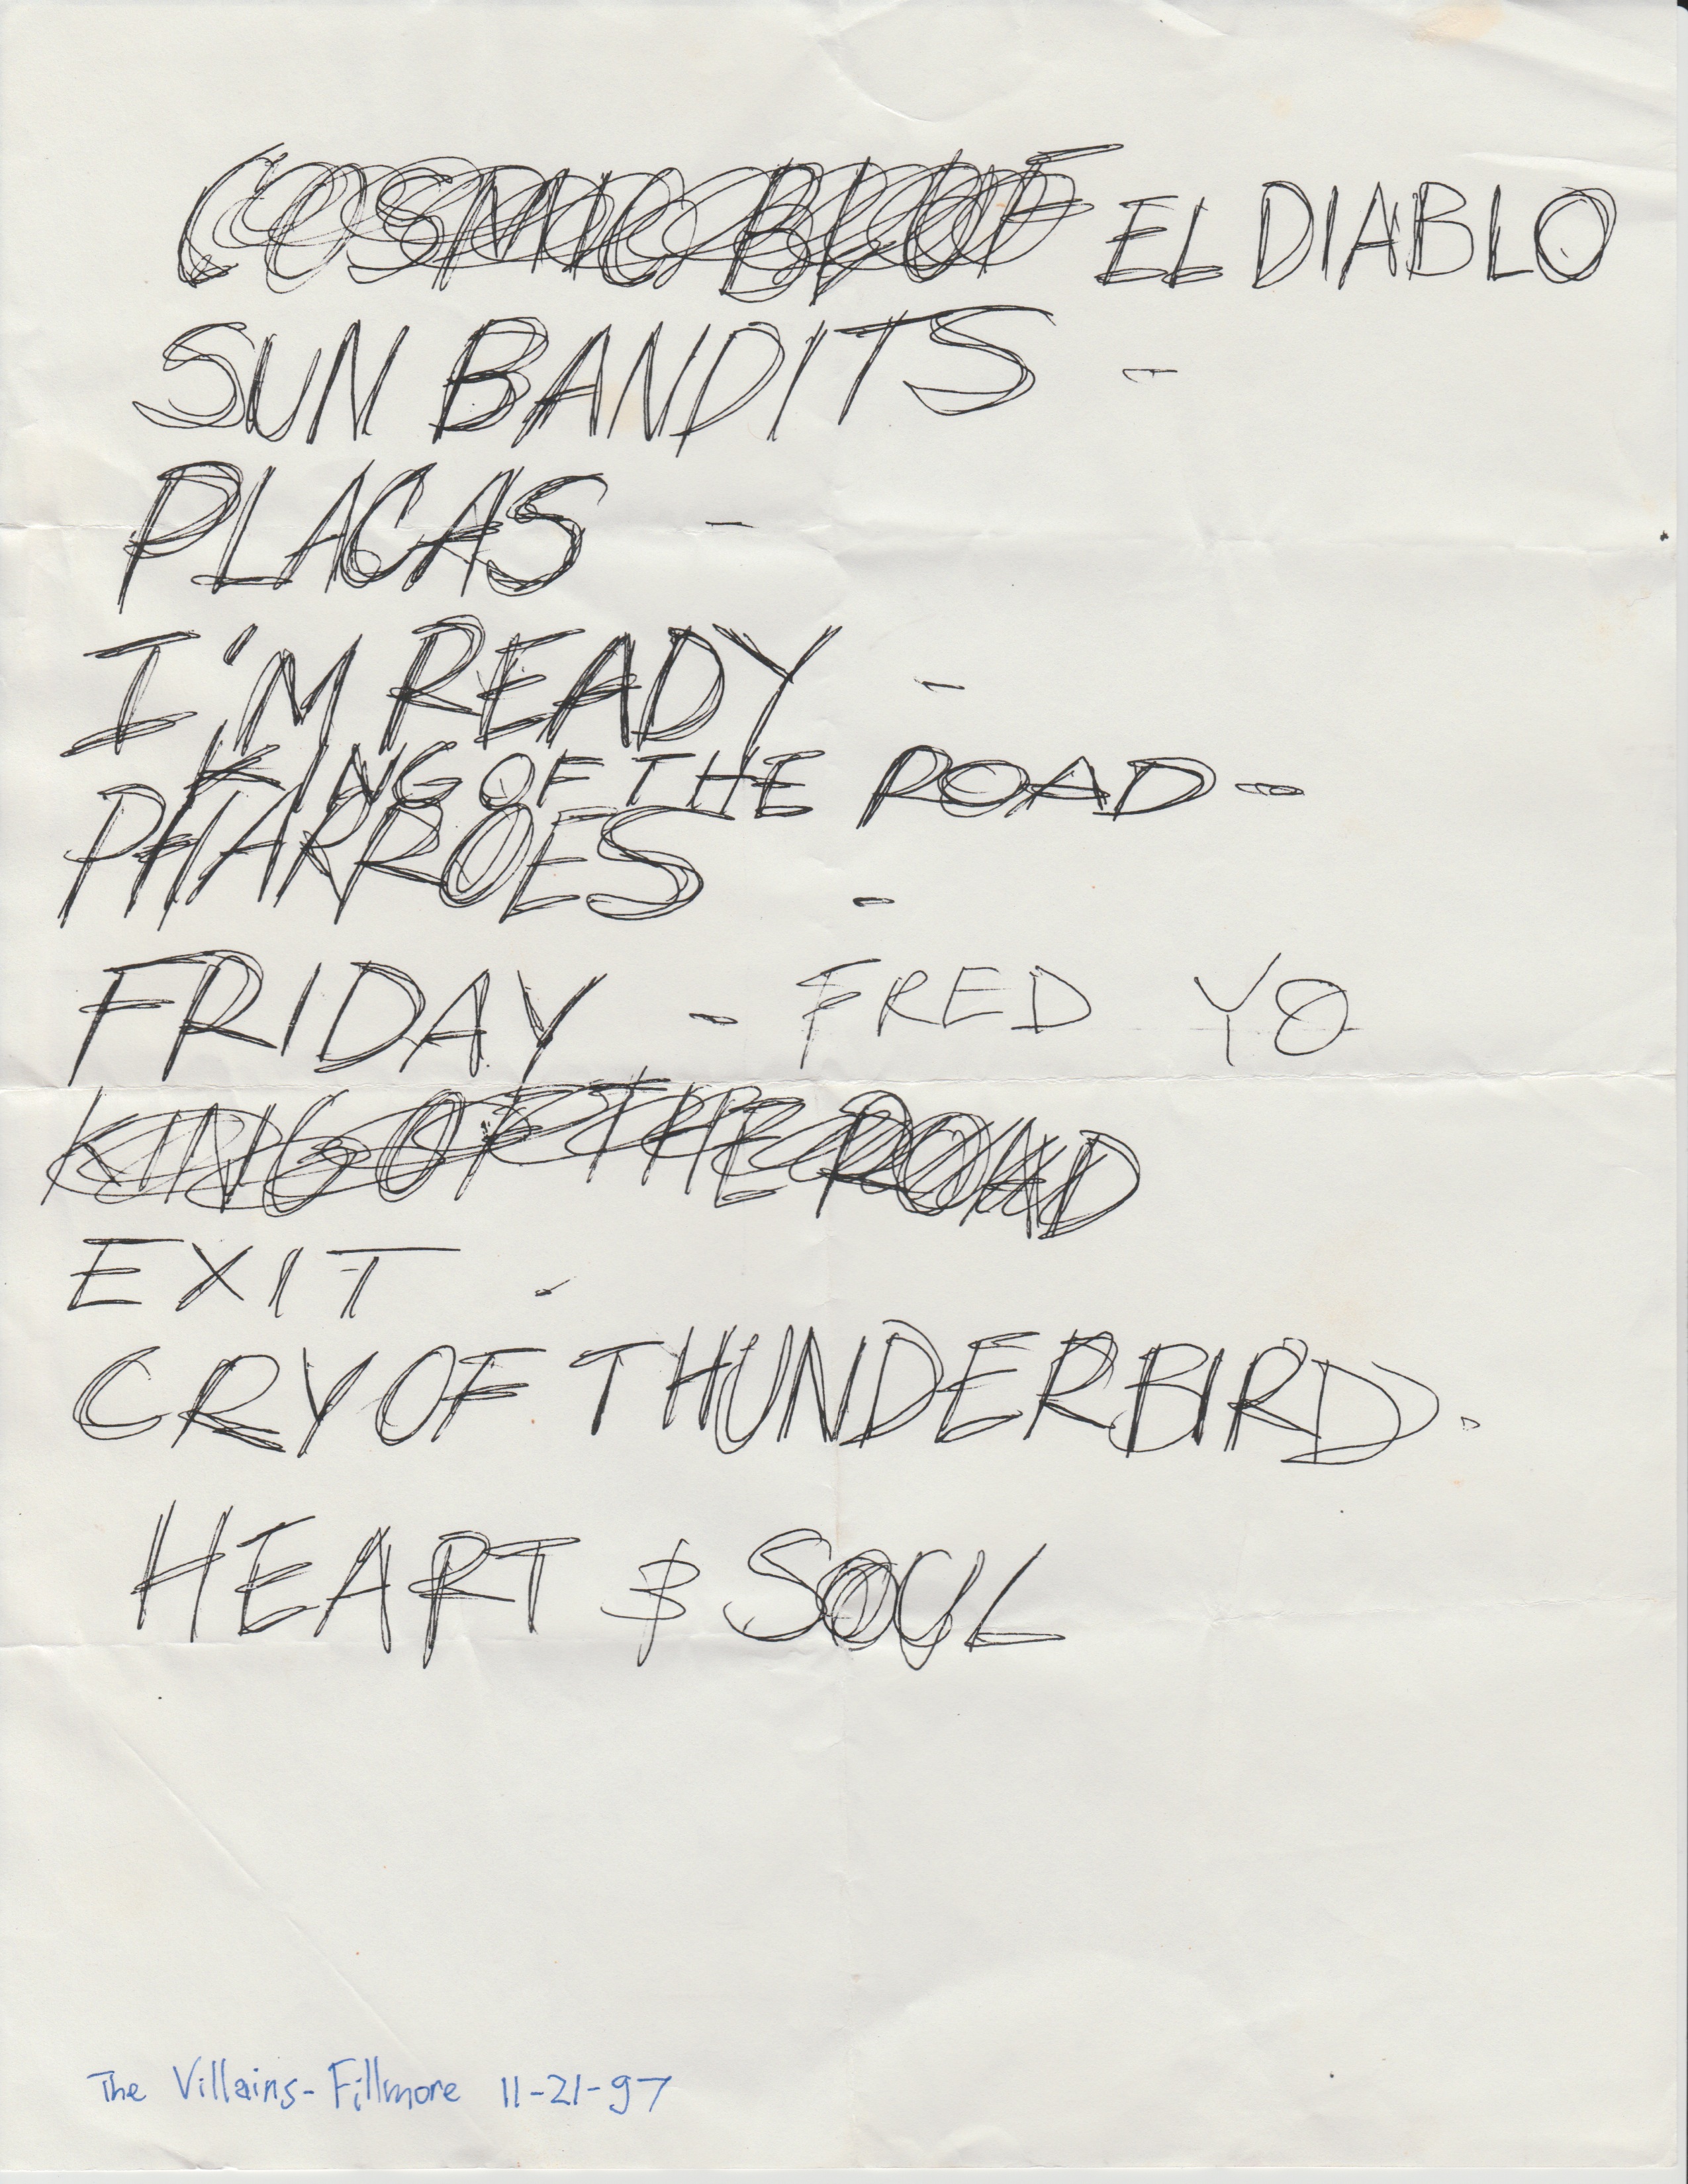 COSMIC BLUE EL DIABLO
SUN BANDITS -
PLACAS -
I'M READY -
KING OF THE ROAD -
PHARROES -
FRIDAY - FRED YO
KING OF THE ROAD
EXIT -
CRY OF THUNDERBIRD.
HEART & SOUL
The Villains - Fillmore 11-21-97